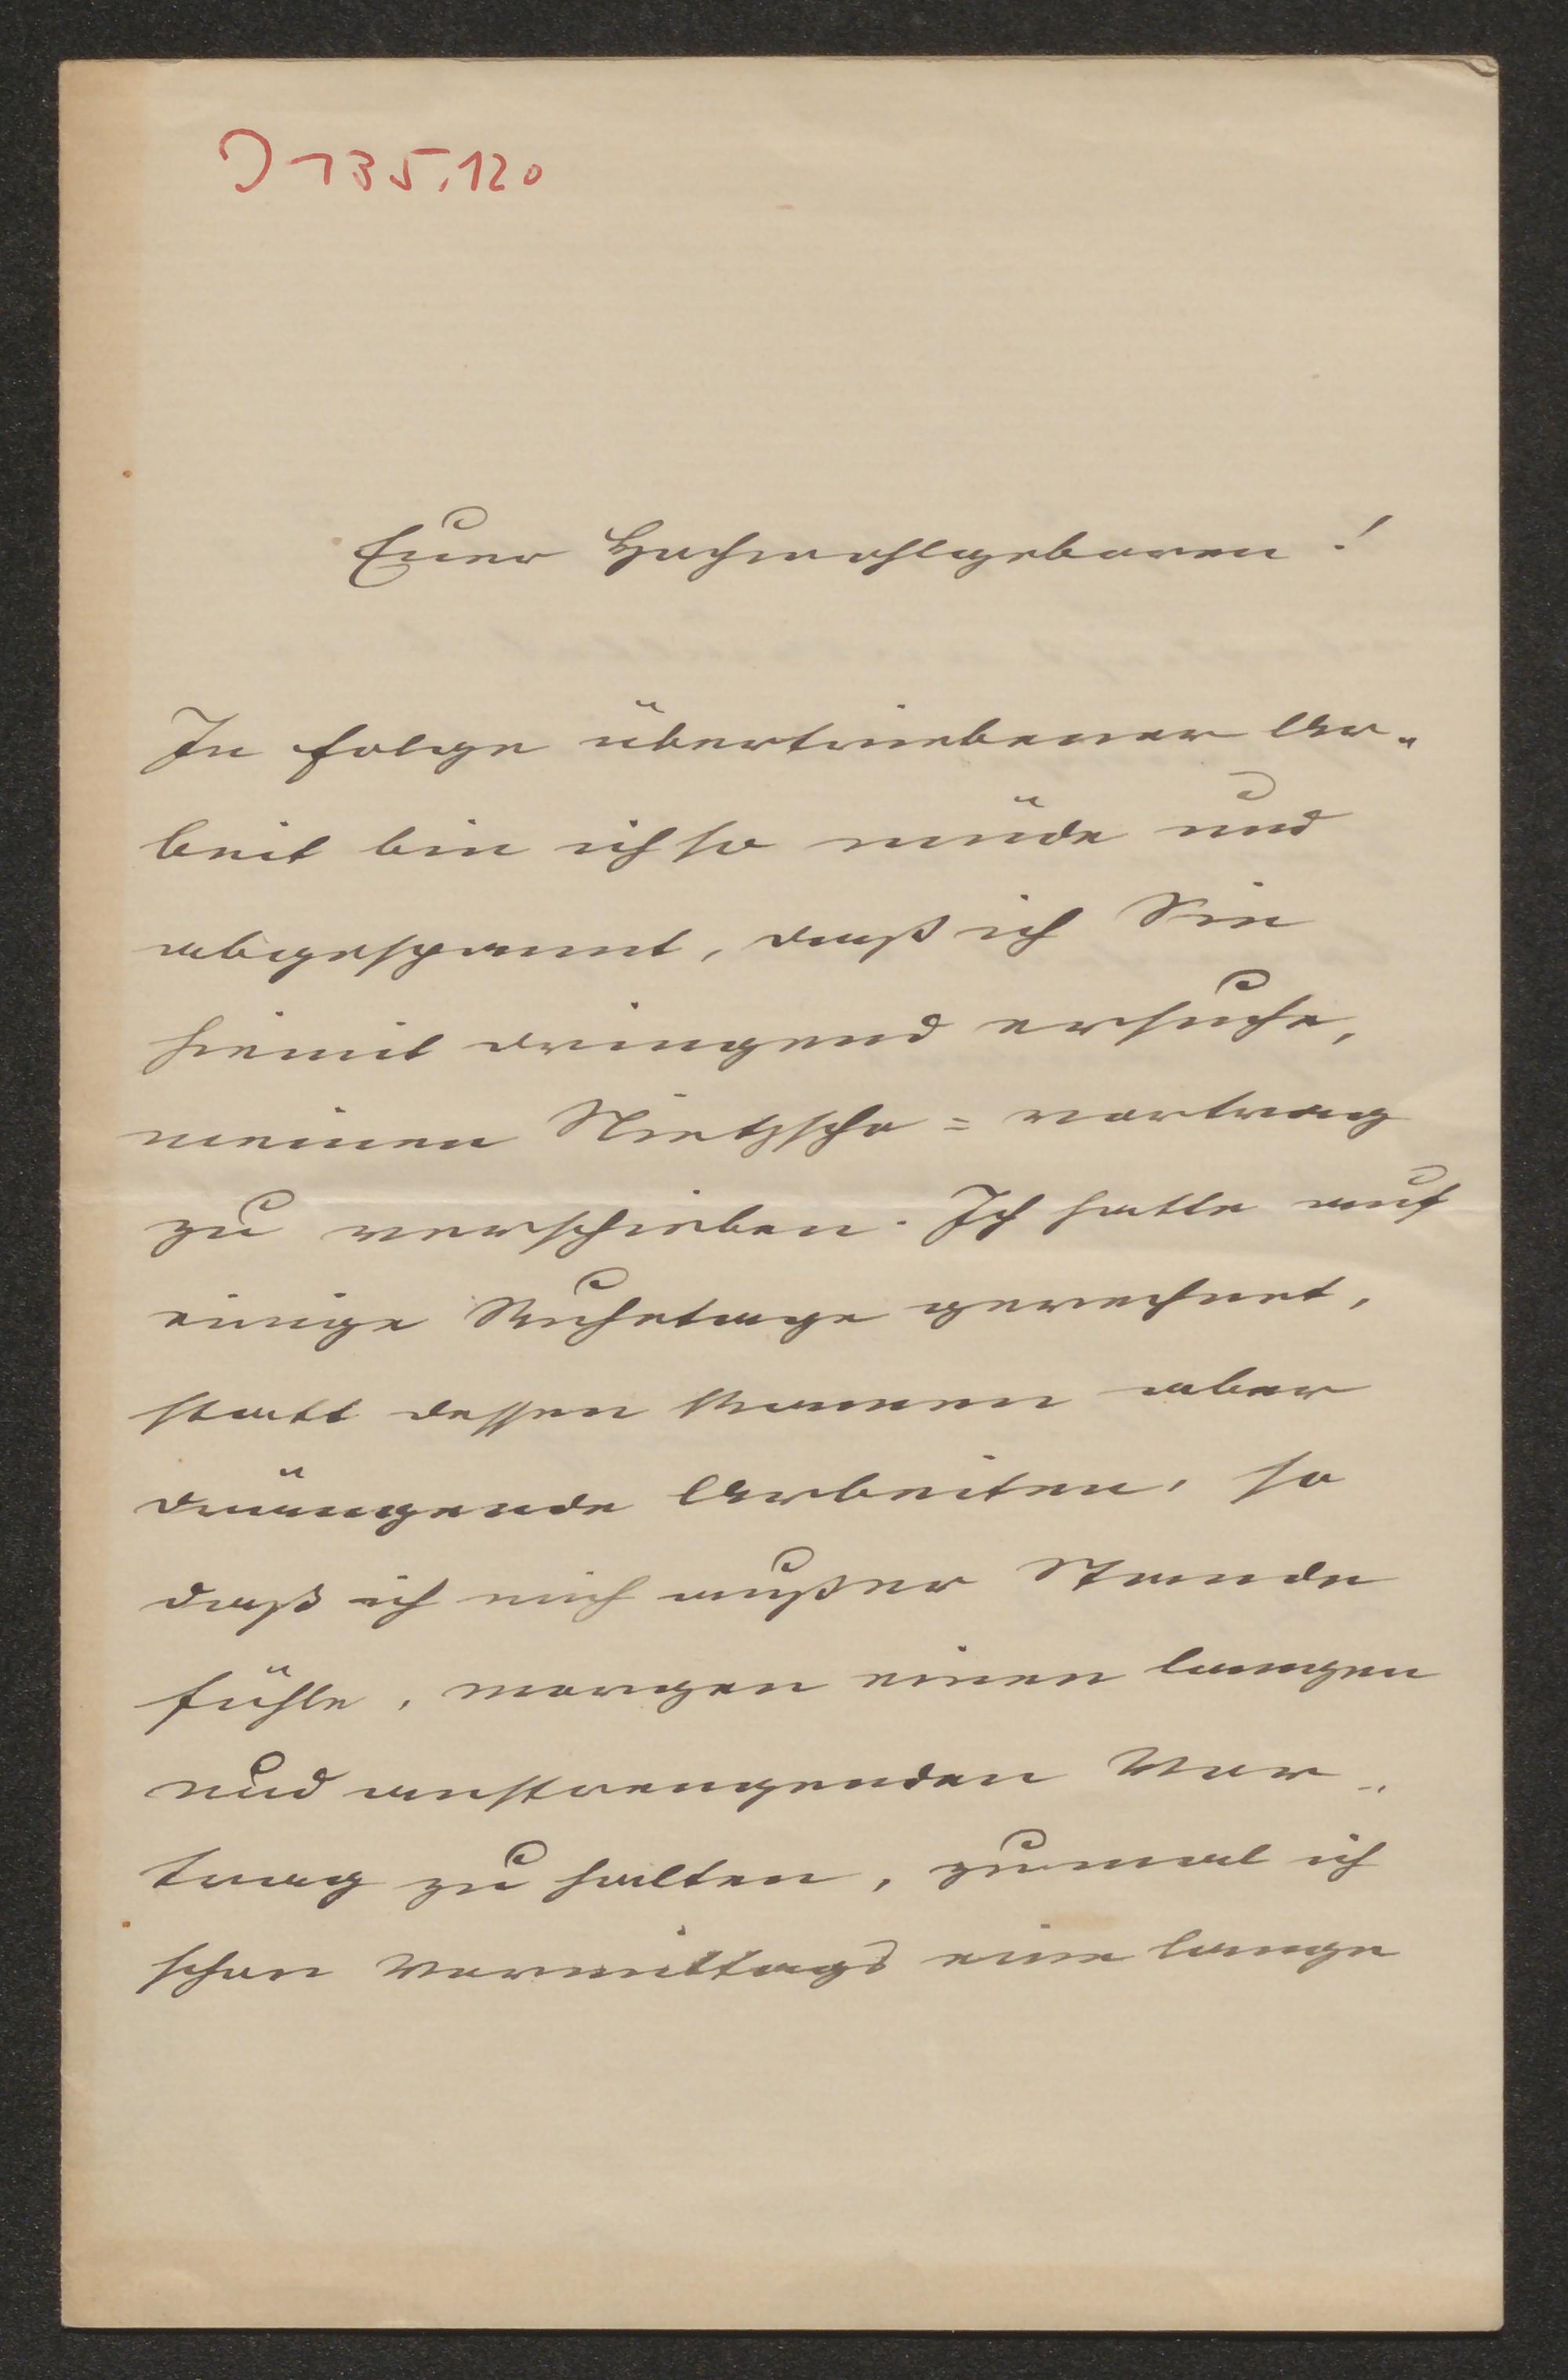 J 135.120
Euer Hochwohlgeboren!
In folge übertriebener Ar-
beit bin ich so müde und
abgespannt, daß ich Sie
hiemit dringend ersuche,
meinen Nietzsche=vortrag
zu verschieben. Ich hatte auf
einige Ruhetage gerechnet,
statt dessen kamen aber
drängende Arbeiten, so
daß ich mich außer Stande
fühle, morgen einen langen
und anstrengenden Vor-
trag zu halten, zumal ich
schon Vormittags eine lange